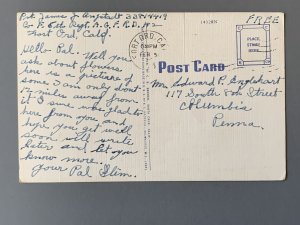 Pvt. James J.
Co. F. 6th Regt. A.G.F.R.D. #2
Fort Ord, Calif.
Hello Pal. Well you
ask about flowers,
here is a picture of
some. I am only about
miles away from
it. I sure was glad to
hear from you and
hope you get well
soon will write
later and let you
know more.
Your Pal Slim.
FORT ORD, CA
PM
FREE
PLACE
STAMP
HERE
POST CARD
Mr. Edward P. Englehart
117 South 8th Street
Columbia
Penna.